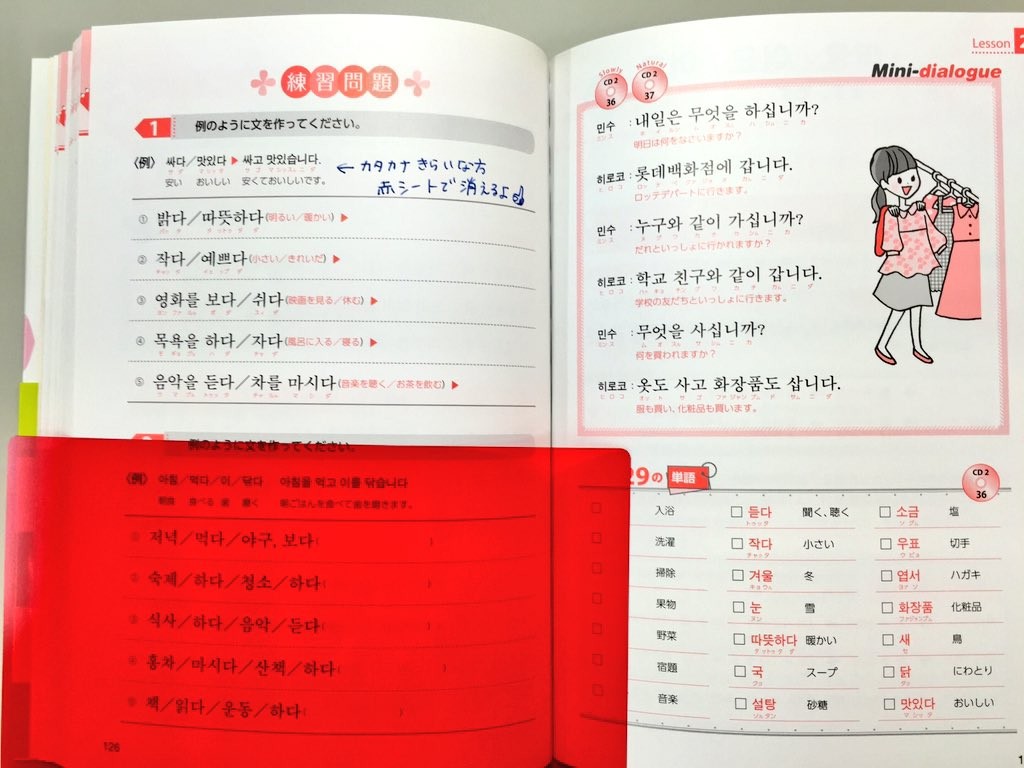 練習問題
1 例のように文を作ってください。
〈例〉 싸다／맛있다 ▶ 싸고 맛있습니다.
安い おいしい 安くておいしいです。
← カタカナきらいな方
赤シートで消えるよ
① 밝다／따뜻하다(明るい／暖かい) ▶
② 작다／예쁘다(小さい／きれいだ) ▶
③ 영화를 보다／쉬다(映画を見る／休む) ▶
④ 목욕을 하다／자다(風呂に入る／寝る) ▶
⑤ 음악을 듣다／차를 마시다(音楽を聴く／お茶を飲む) ▶
例のように文を作ってください。
〈例〉 아침／먹다／이／닦다 아침을 먹고 이를 닦습니다
朝食 食べる 歯 磨く 朝ごはんを食べて歯を磨きます。
① 저녁／먹다／야구, 보다( )
② 숙제／하다／청소／하다( )
③ 식사／하다／음악／듣다( )
④ 홍차／마시다／산책／하다( )
⑤ 책／읽다／운동／하다( )
126
Lesson 2
Mini-dialogue
Slowly CD 2 36
Natural CD 2 37
민수 : 내일은 무엇을 하십니까?
ミンス
明日は何をなさいますか？
히로코 : 롯데백화점에 갑니다.
ヒロコ
ロッテデパートに行きます。
민수 : 누구와 같이 가십니까?
ミンス
だれといっしょに行かれますか？
히로코 : 학교 친구와 같이 갑니다.
ヒロコ
学校の友だちといっしょに行きます。
민수 : 무엇을 사십니까?
ミンス
何を買われますか？
히로코 : 옷도 사고 화장품도 삽니다.
ヒロコ
服も買い、化粧品も買います。
29の 単語
CD 2 36
入浴 □ 듣다 聞く、聴く □ 소금 塩
洗濯 □ 작다 小さい □ 우표 切手
掃除 □ 겨울 冬 □ 엽서 ハガキ
果物 □ 눈 雪 □ 화장품 化粧品
野菜 □ 따뜻하다 暖かい □ 새 鳥
宿題 □ 국 スープ □ 닭 にわとり
音楽 □ 설탕 砂糖 □ 맛있다 おいしい